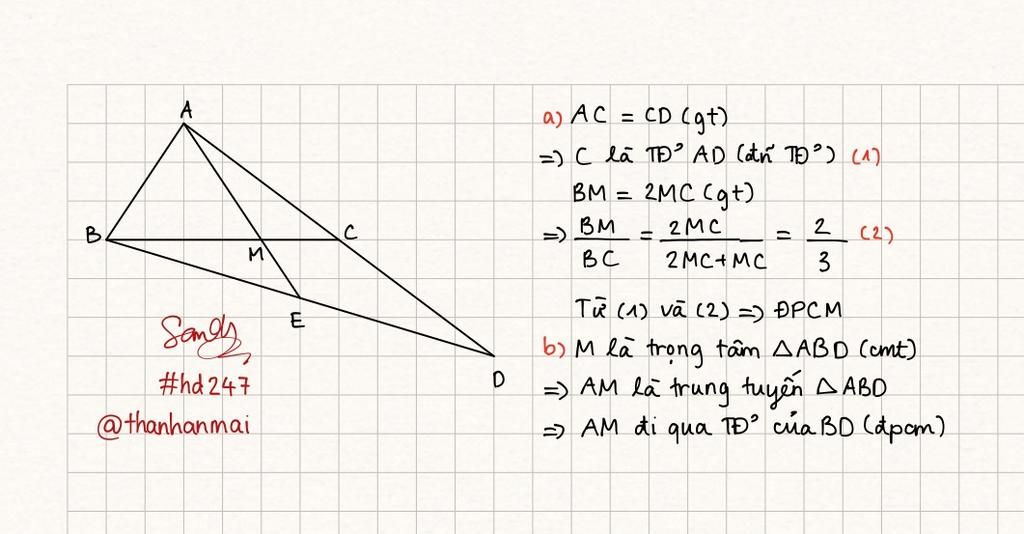 A
B
C
M
E
D
Sandy
#hd247
@thanhanmai
a) AC = CD (gt)
=) C là TĐ° AD (đn TĐ°) (1)
BM = 2MC (gt)
=) BM/BC = 2MC/2MC+MC = 2/3 (2)
Từ (1) và (2) =) ĐPCM
b) M là trọng tâm △ABD (cmt)
=) AM là trung tuyến △ABD
=) AM đi qua TĐ° của BD (đpcm)